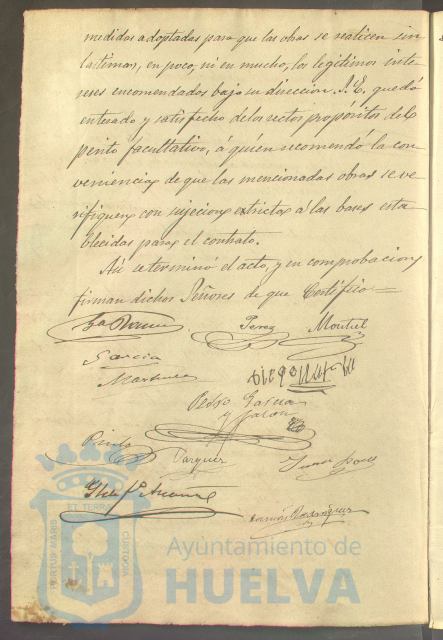 medidas adoptadas para que las obras se realicen sin
lastimar, en poco, ni en mucho, los legítimos inte
reses encomendados bajo su dirección. S. E. quedó
enterado y satisfecho de los rectos propósitos del
perito facultativo, á quien recomendó la con
veniencia de que las mencionadas obras se ve
rifiquen con sujecion extricta á las bases esta
blecidas para el contrato.
Asi se terminó el acto, y en comprobacion
firman dichos Señores de que Certifico =
Perez Montiel
Garcia
Martinez
Diego
Pedro Garcia
y Jalon
Pinto Vazquez Juan
Rodriguez
PORTUS MARIS
ET TERRAE
CUSTODIA
Ayuntamiento de
HUELVA